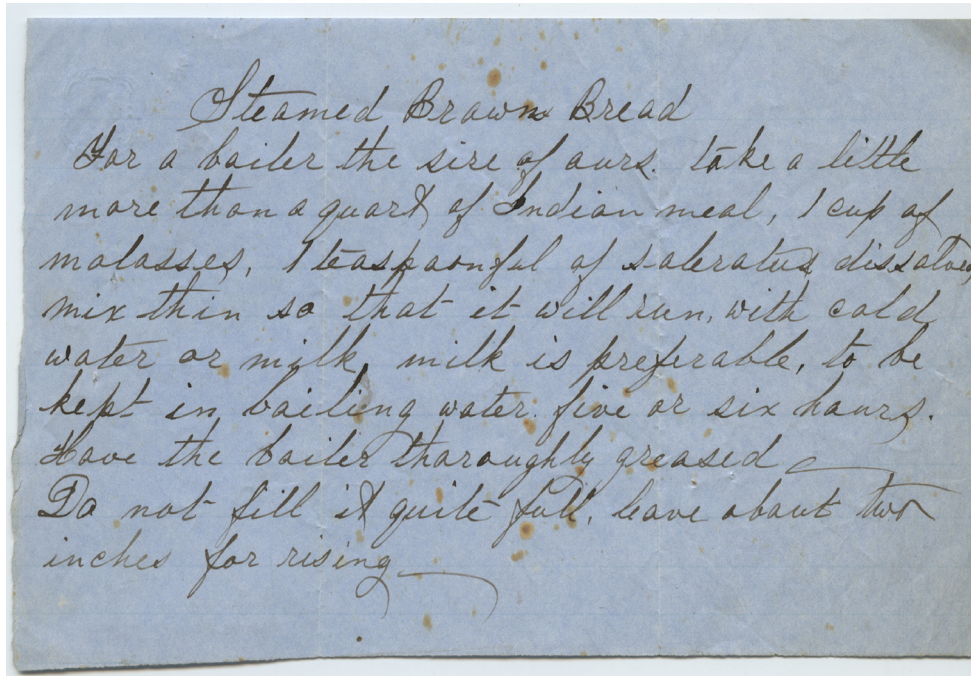 Steamed Brown Bread
For a boiler the size of ours. take a little
more than a quart of Indian meal, 1 cup of
molasses, 1 teaspoonful of saleratus dissolved
mix thin so that it will run, with cold
water or milk, milk is preferable, to be
kept in boiling water five or six hours.
Have the boiler thoroughly greased
Do not fill it quite full, leave about two
inches for rising